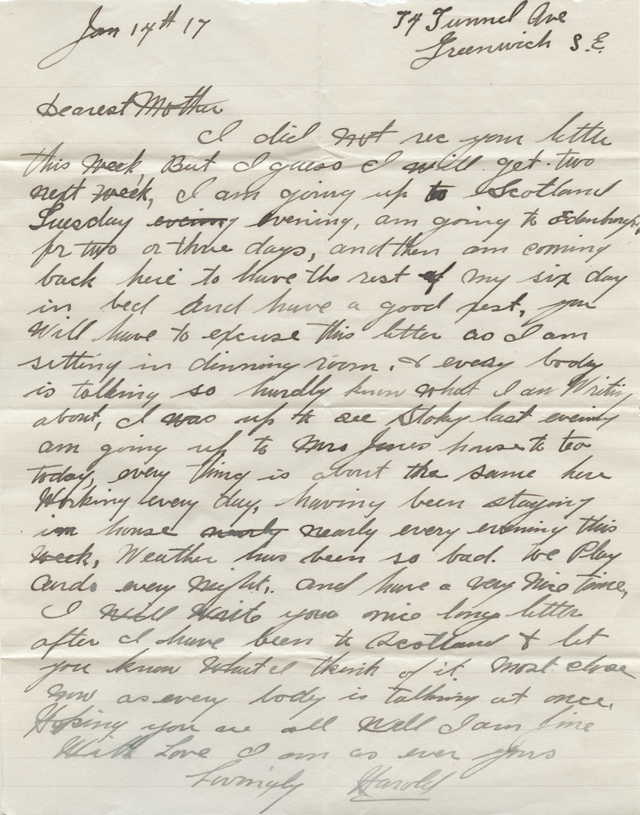 Jan 14th 17
74 Tunnel Ave
Greenwich S.E.
Dearest Mother
I did not rec your letter
this week, But I guess I will get two
next week, I am going up to Scotland
Tuesday evening, am going to Edinburgh,
for two or three days, and then am coming
back here to have the rest of my six day
in bed and have a good rest, you
Will have to excuse this letter as I am
sitting in dinning room, & every body
is talking so hardly know what I am Writing
about, I was up to see Stoky last evening
am going up to Mrs Jones house to tea
today, every thing is about the same here
Working every day, having been staying
in house nearly every evening this
week, Weather has been so bad. We Play
cards every night, and have a very nice time,
I Will Write you nice long letter
after I have been to Scotland & let
you know What I think of it. Must close
now as every body is talking at once,
Hoping you are all Well I am fine
With Love I am as ever yours
Lovingly Harold